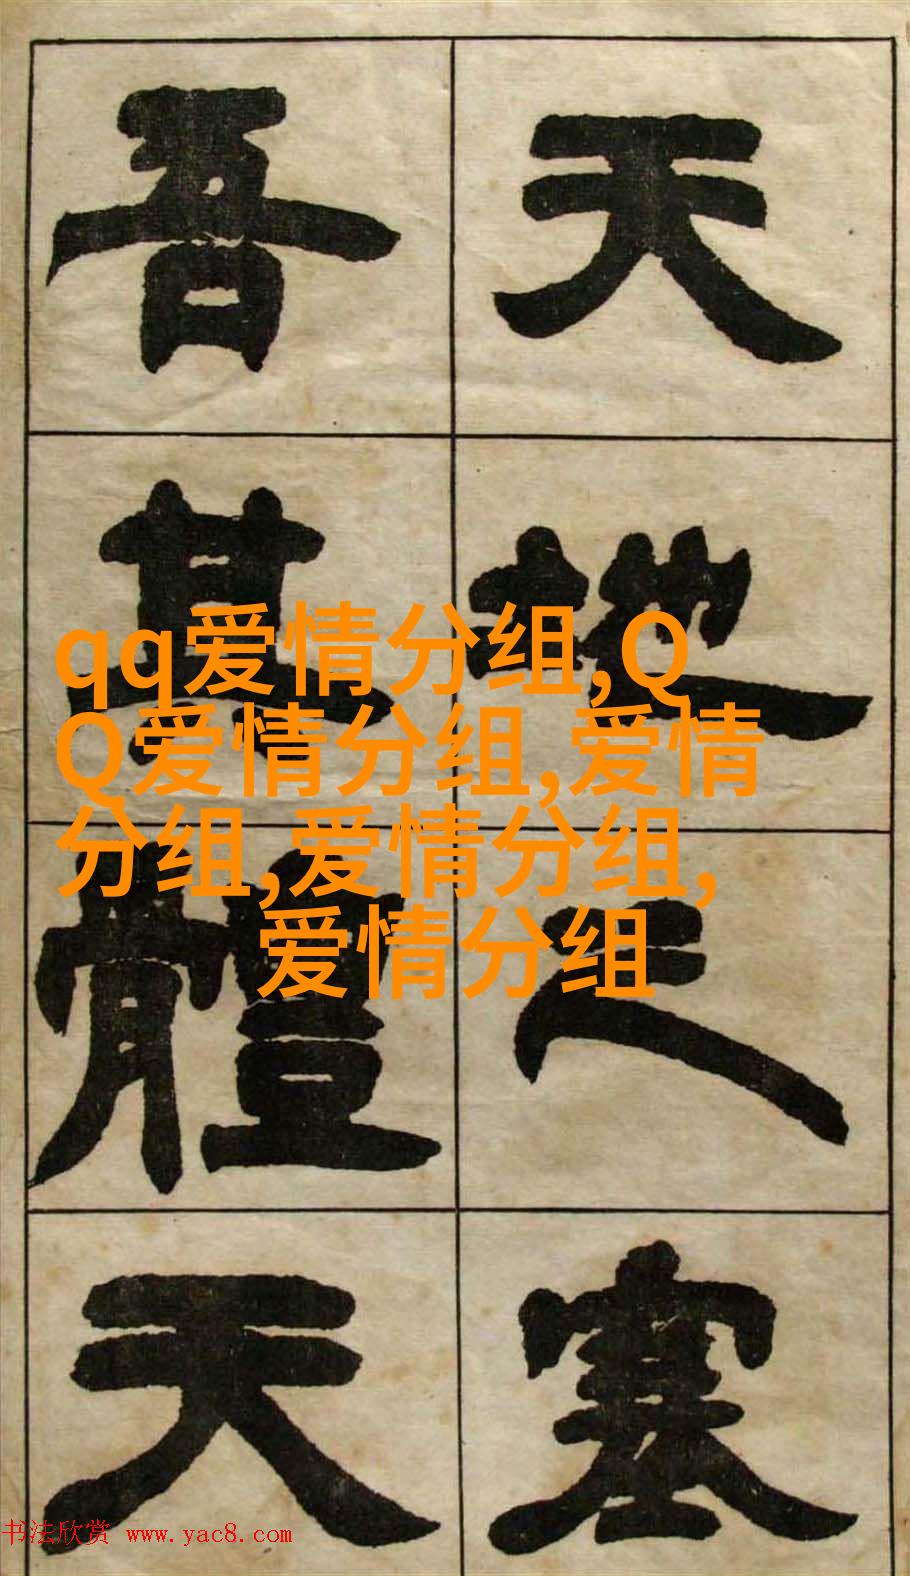 天地之塞
吾其體天
qq爱情分组,Q
Q爱情分组,爱情
分组,爱情分组,
爱情分组
书法欣赏 www.yac8.com